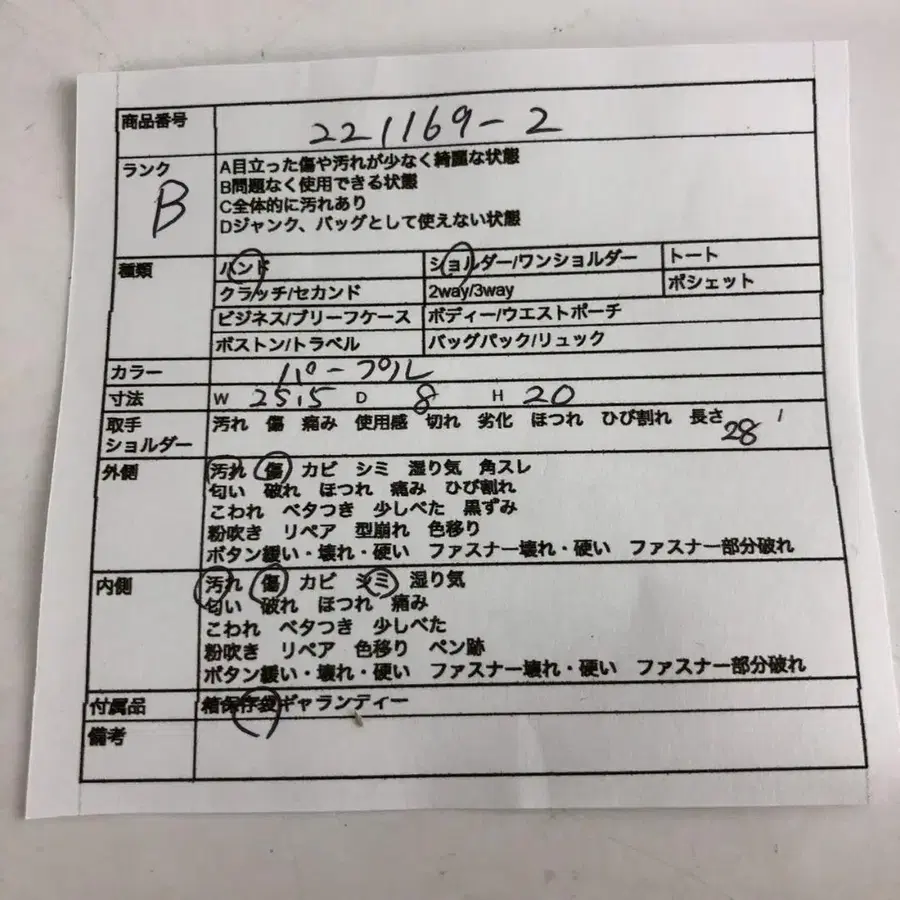 商品番号 221169-2
ランク B
A目立った傷や汚れが少なく綺麗な状態
B問題なく使用できる状態
C全体的に汚れあり
Dジャンク、バッグとして使えない状態
種類 ハンド ショルダー/ワンショルダー トート
クラッチ/セカンド 2way/3way ポシェット
ビジネス/ブリーフケース ボディー/ウエストポーチ
ボストン/トラベル バッグパック/リュック
カラー パープル
寸法 W 25.5 D 8 H 20
取手 汚れ 傷 痛み 使用感 切れ 劣化 ほつれ ひび割れ 長さ 28
ショルダー
外側 汚れ 傷 カビ シミ 湿り気 角スレ
匂い 破れ ほつれ 痛み ひび割れ
こわれ ベタつき 少しべた 黒ずみ
粉吹き リペア 型崩れ 色移り
ボタン緩い・壊れ・硬い ファスナー壊れ・硬い ファスナー部分破れ
内側 汚れ 傷 カビ シミ 湿り気
匂い 破れ ほつれ 痛み
こわれ ベタつき 少しべた
粉吹き リペア 色移り ペン跡
ボタン緩い・壊れ・硬い ファスナー壊れ・硬い ファスナー部分破れ
付属品 箱保存袋ギャランティー
備考